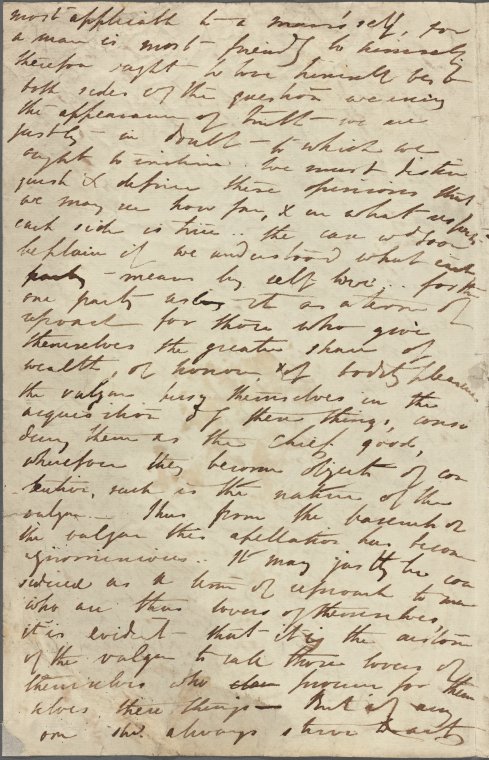 most applicable to a man's self, for
a man is most friendly to himself
therefore ought to love himself best
both sides of the question wearing
the appearance of truth we are
justly in doubt to which we
ought to incline. We must distin
guish & define these opinions that
we may see how far, & in what respects
each side is true. the case wd soon
be plain if we understood what each
party means by self love. for the
one party as it as a term of
reproach for those who give
themselves the greater share of
wealth, or honour, & of bodily pleasures
the vulgar busy themselves in the
acquisition of these things, consi
dering them as the chief good,
wherefore they become objects of con
tention, such is the nature of the
vulgar. Thus from the baseness of
the vulgar this apellation has becom
ignominious. It may justly be con
sidered as a term of reproach to men
who are thus lovers of themselves,
it is evident that it is the custom
of the vulgar to call those lovers of
themselves who procure for them
selves these things But if any
one shd always strive to act